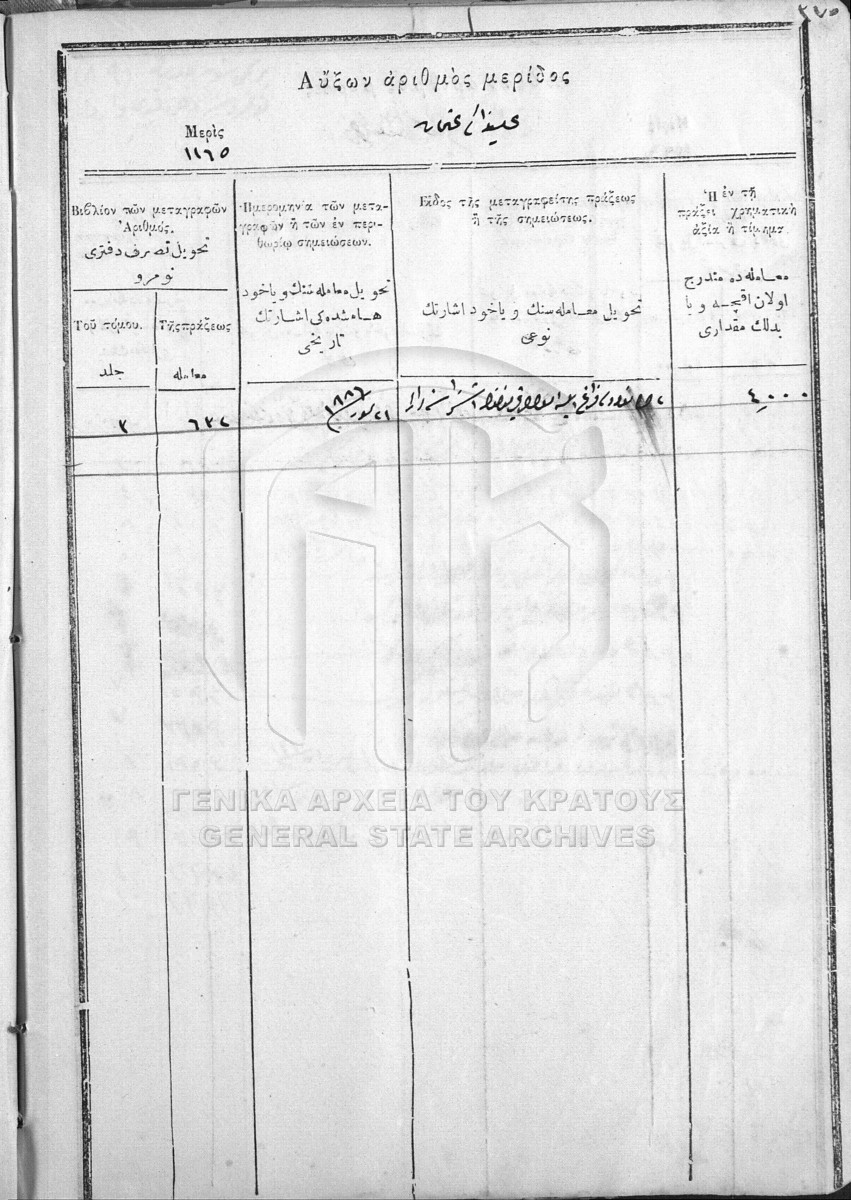 ٤٧٥
Αὔξων ἀριθμὸς μερίδος
Μερὶς
١١٦٥
Βιβλίον τῶν μεταγραφῶν
Ἀριθμός.
تحويل تصرف دفترى
نومرو
Τοῦ τόμου.
جلد
Τῆς πράξεως
معامله
Ἡμερομηνία τῶν μετα-
γραφῶν ἢ τῶν ἐν περι-
θωρίῳ σημειώσεων.
تحويل معامله سنك و ياخود
هامشده كى اشارتك
تاريخى
Εἶδος τῆς μεταγραφείσης πράξεως
ἢ τῆς σημειώσεως.
تحويل معامله سنك و ياخود اشارتك
نوعى
Ἡ ἐν τῇ
πράξει χρηματικὴ
ἀξία ἢ τίμημα.
معامله ده مندرج
اولان اقچه و يا
بدلك مقدارى
٣
١٨٨٦
٤,٠٠٠
ΓΕΝΙΚΑ ΑΡΧΕΙΑ ΤΟΥ ΚΡΑΤΟΥΣ
GENERAL STATE ARCHIVES